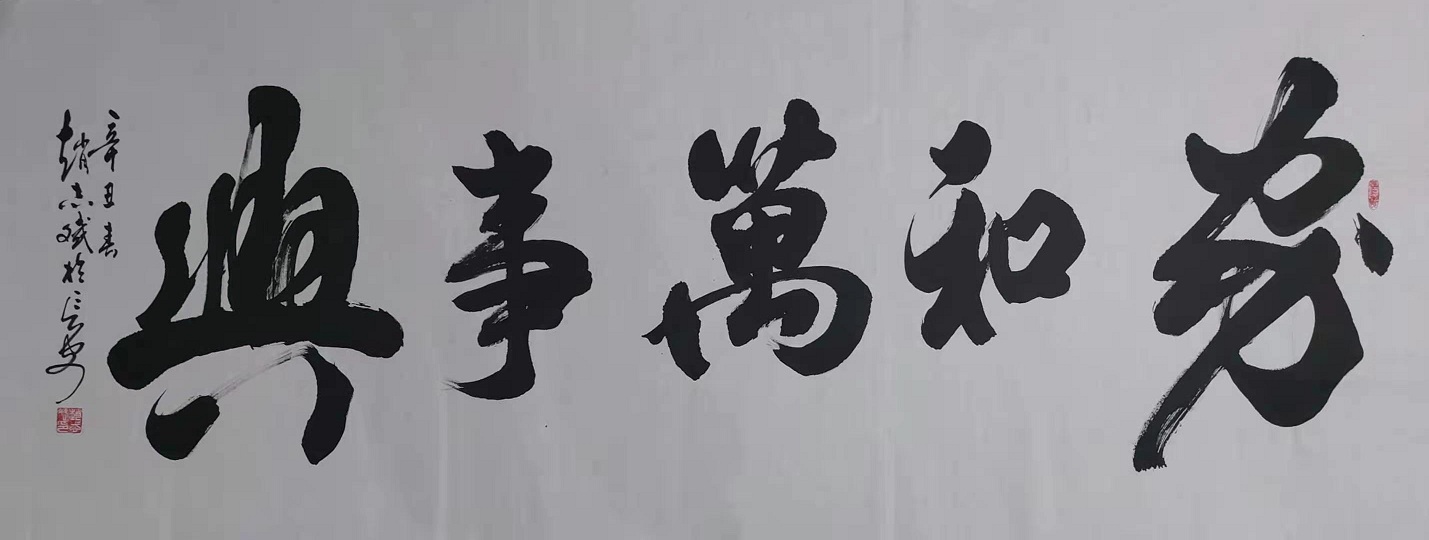 家和萬事興
辛丑春
趙志斌於長安